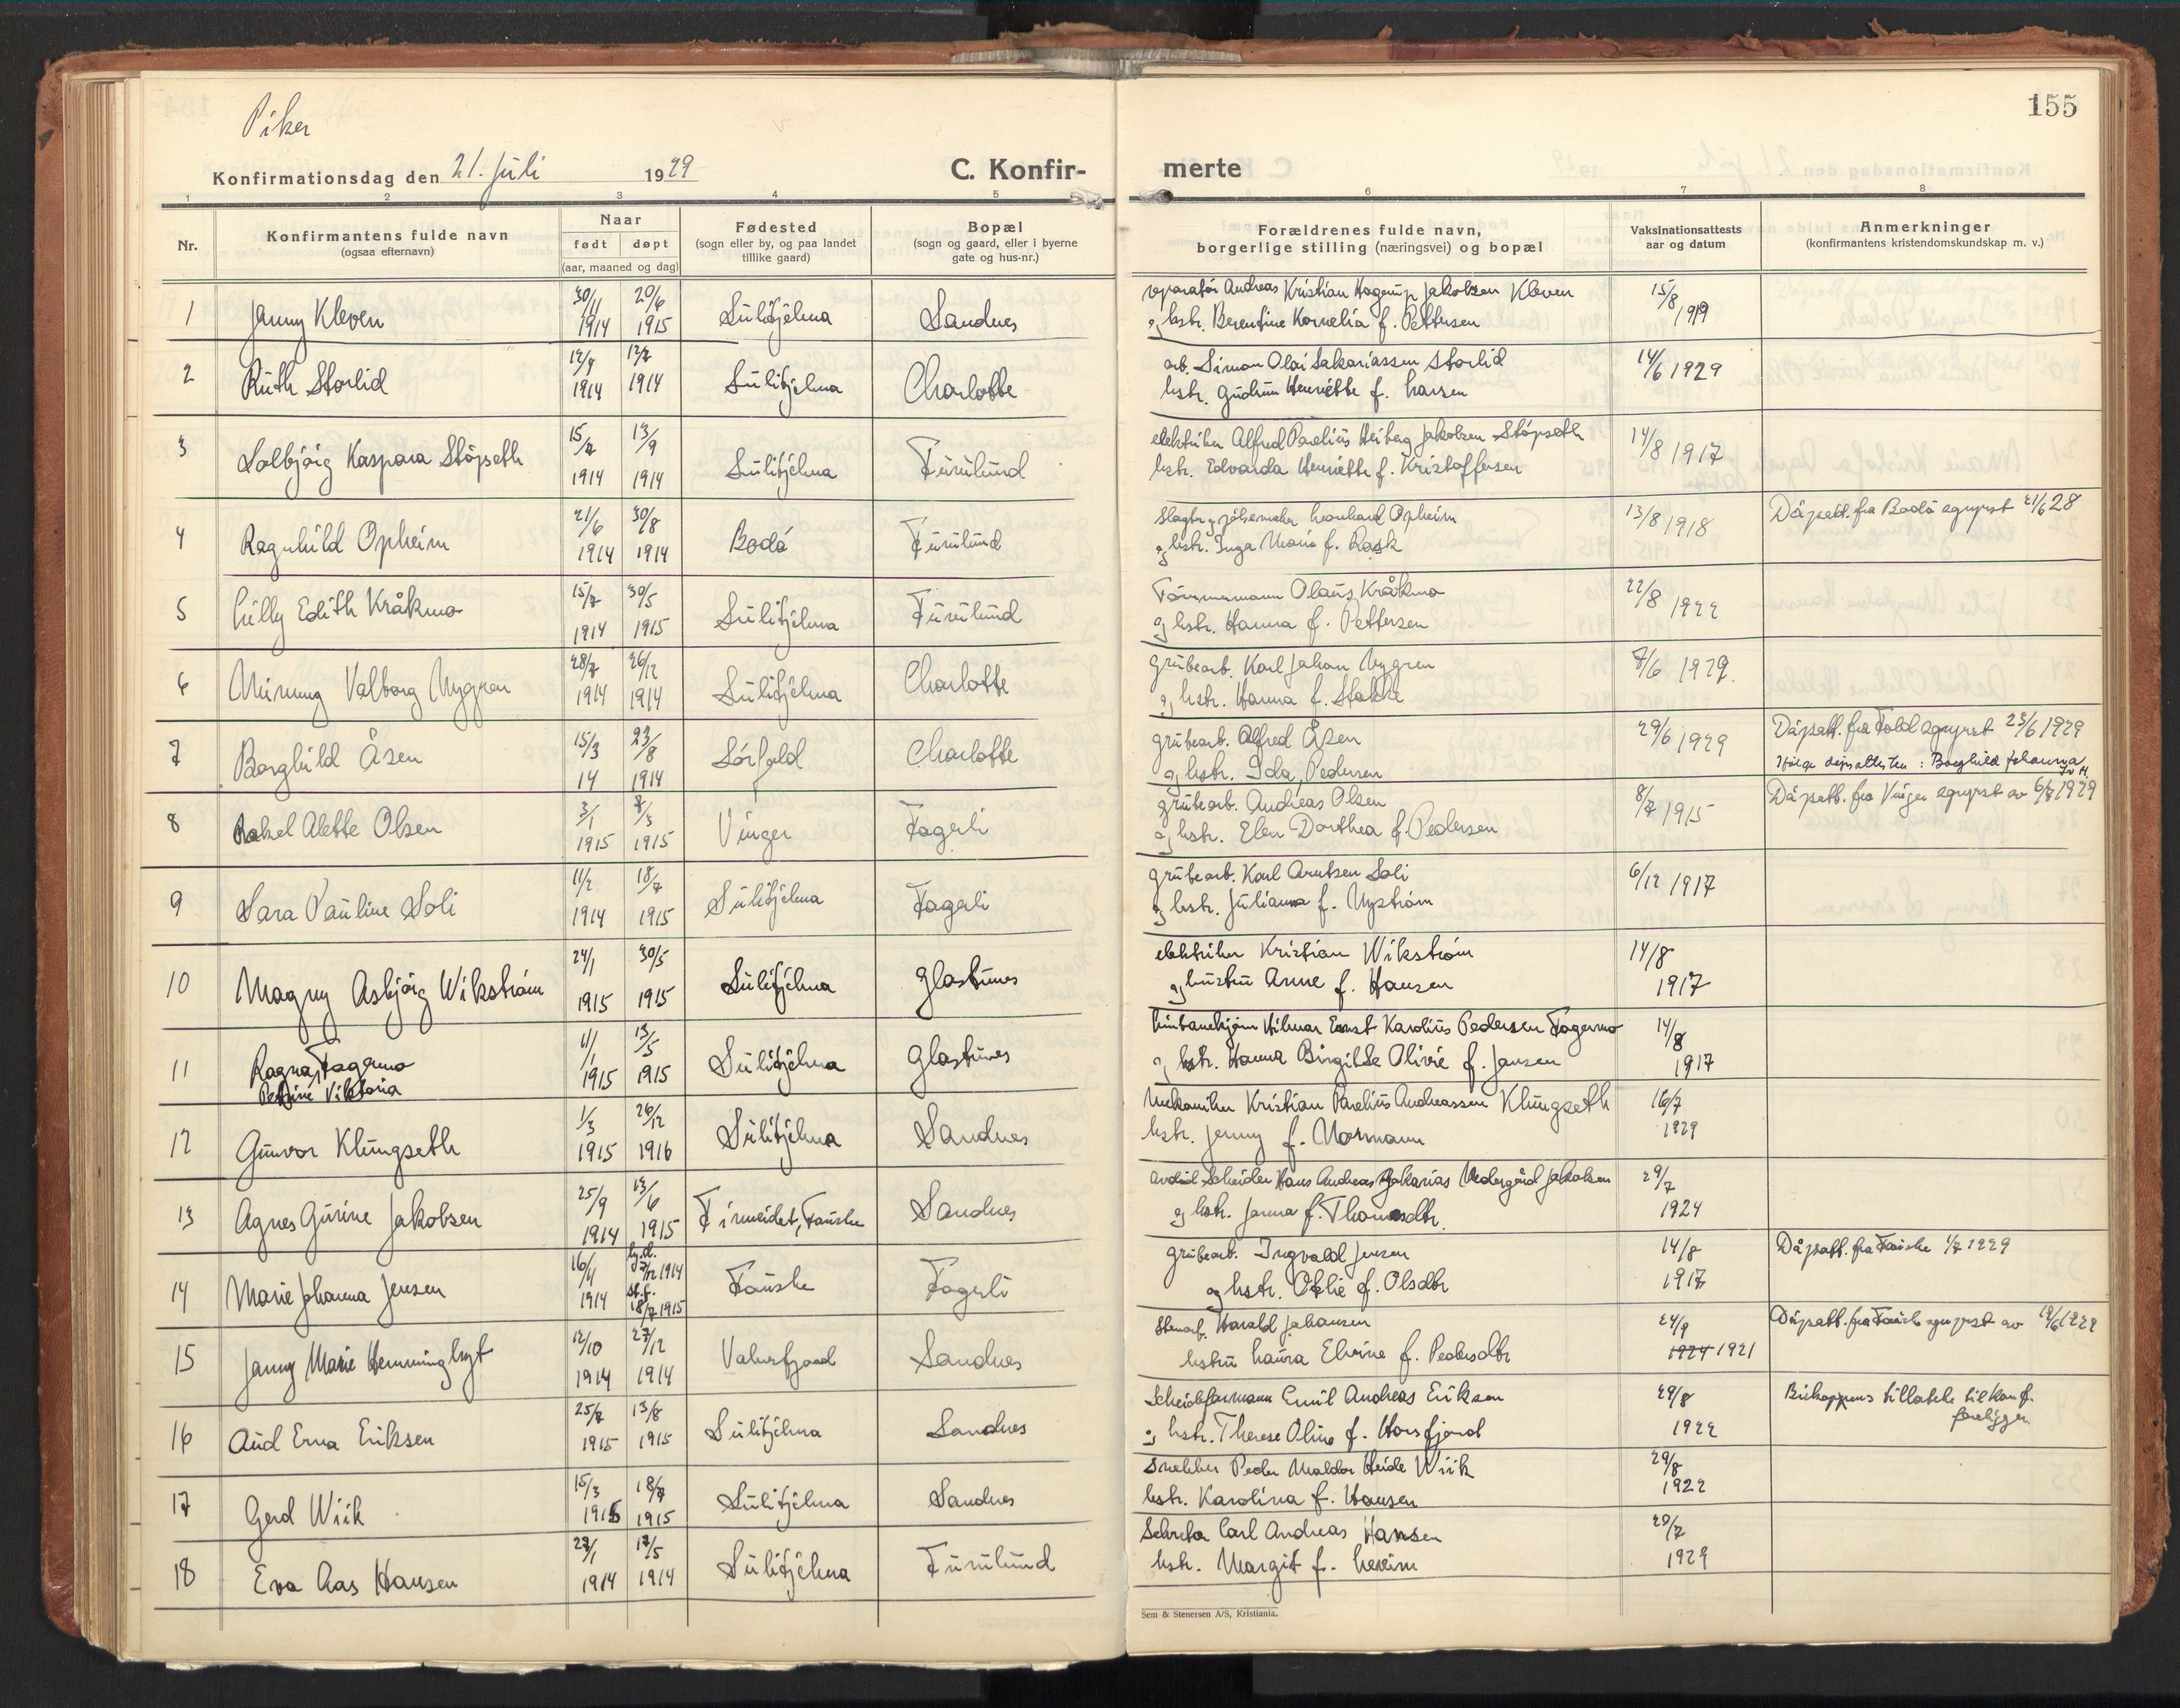 Piker
155
Konfirmationsdag den 21. juli 1929
C. Konfir-
merte
1 2 3 4 5 6 7 8
Nr.
Konfirmantens fulde navn
(ogsaa efternavn)
Naar
født døpt
(aar, maaned og dag)
Fødested
(sogn eller by, og paa landet
tillike gaard)
Bopæl
(sogn og gaard, eller i byerne
gate og hus-nr.)
Forældrenes fulde navn,
borgerlige stilling (næringsvei) og bopæl
Vaksinationsattests
aar og datum
Anmerkninger
(konfirmantens kristendomskundskap m. v.)
1 Jenny Kleven 30/11 1914 20/6 1915 Sulitjelma Sandnes
reparatør Andreas Kristian Hagerup Jakobsen Kleven 15/8 1919
og hstr. Berentine Kornelia f. Pettersen
2 Ruth Storlid 1914 1914 Sulitjelma Charlotte
arb. Simon Olai Sakariassen Storlid 14/6 1929
hstr. Gudrun Henriette f. Larsen
3 Solbjørg Kaspara Støpseth 15/7 1914 13/9 1914 Sulitjelma Furulund
elektriker Alfred Parelius Heiberg Jakobsen Støpseth 14/8 1917
hstr. Edvarda Henriette f. Kristoffersen
4 Ragnhild Opheim 21/6 1914 30/8 1914 Bodø Furulund
Slagter og pølsemaker Leonhard Opheim 13/8 1918 Dåpsatt. fra Bodø sogneprest 21/6 28
og hstr. Inga Marie f. Rask
5 Lilly Edith Kråkmo 15/7 1914 30/5 1915 Sulitjelma Furulund
Tømmermann Olaus Kråkmo 22/8 1922
og hstr. Hanna f. Pettersen
6 Valborg Nygren 28/7 1914 26/12 1914 Sulitjelma Charlotte
grubearb. Karl Johan Nygren 7/6 1929.
og hstr. Hanna f. Stokke
7 Borghild Åsen 15/3 14 23/8 1914 Sørfold Charlotte
grubearb. Alfred Åsen 29/6 1929 Dåpsatt. fra Fold sogneprest 23/6 1929
og hstr. Ida, Pedersen Ifølge dåpsattesten: Borghild Johanna
8 Rakel Alette Olsen 3/1 1915 7/3 1915 Vinger Fagerli
grubearb. Andreas Olsen 8/7 1915 Dåpsatt. fra Vinger sogneprest av 6/7 1929
og hstr. Elen Dorthea f. Pedersen
9 Sara Pauline Soli 11/2 1914 18/7 1915 Sulitjelma Fagerli
grubearb. Karl Arntsen Soli 6/12 1917
og hstr. Julianna f. Nystrøm
10 Magny Asbjørg Wikstrøm 24/1 1915 30/5 1915 Sulitjelma Glastunes
elektriker Kristian Wikstrøm 14/8 1917
og hustru Anne f. Hansen
11 Ragna, Fagermo 11/1 1915 13/5 1915 Sulitjelma Glastunes
Petrine Viktoria
Hilmar Ernst Karolius Pedersen Fagermo 14/8 1917
og hstr. Hanna Birgitte Olivie f. Jansen
12 Gunvor Klungseth 1/3 1915 26/12 1916 Sulitjelma Sandnes
Mekaniker Kristian Parelius Andreassen Klungseth 16/7 1929
hstr. Jenny f. Normann
13 Agnes Gurine Jakobsen 25/9 1914 13/6 1915 Finneidet, Fauske Sandnes
Scheider Hans Andreas Zakarias Vedergård Jakobsen 29/7 1924
og hstr. Janna f. Thomasdtr.
14 Marie Johanna Jensen 16/11 1914 hj.d. 27/12 1914 st.f. 18/7 1915 Fauske Fagerli
grubearb. Ingvald Jensen 14/8 1917 Dåpsatt. fra Fauske 1/7 1929
og hstr. Otelie f. Olsdtr
15 Jenny Marie Hemminghyt 12/10 1914 27/12 1914 Valnesfjord Sandnes
Stenarb. Harald Johansen 24/9 1924 1921 Dåpsatt. fra Fauske sogneprest av 19/6 1929
hstru Laura Elvine f. Pedersdtr
16 Aud Erna Eriksen 25/7 1915 13/8 1915 Sulitjelma Sandnes
Scheideformann Emil Andreas Eriksen 29/8 1922 Biskoppens tillatelse til konf.
foreligger
og hstr. Therese Oline f. Horsfjord
17 Gerd Wiik 15/3 1915 18/7 1915 Sulitjelma Sandnes
Snekker Peder Meldor Heide Wiik 29/8 1922
hstr. Karolina f. Hansen
18 Eva Aas Hansen 27/1 1914 17/5 1914 Sulitjelma Furulund
Carl Andreas Hansen 20/7 1929
hstr. Margit f.
Sem & Stenersen A/S, Kristiania.